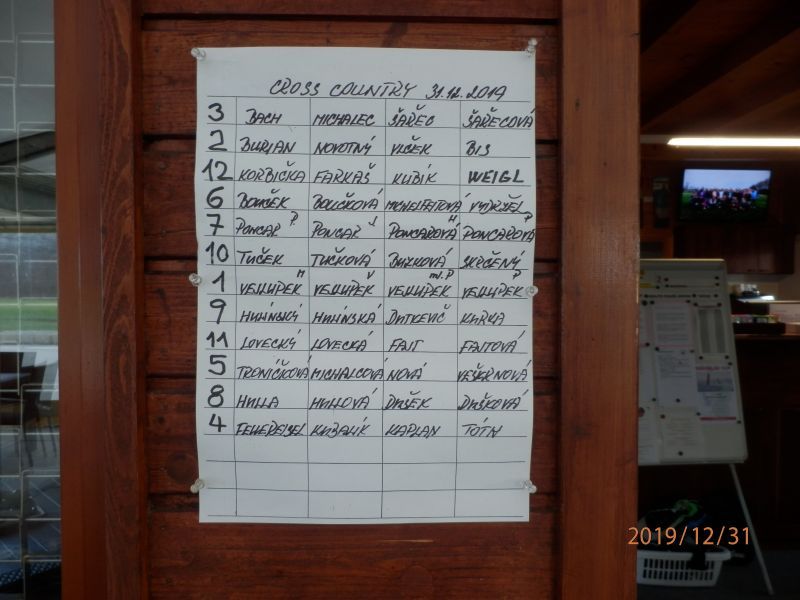 CROSS COUNTRY 31.12.2019
3 BACH MICHALEC ŠAŘEC ŠAŘECOVÁ
2 BURIAN NOVOTNÝ VLČEK BIS
12 KORBIČKA FARKAŠ KUBÍK WEIGL
6 BOUČEK BOUČKOVÁ VYDRŽEL
7 PONCAR P. PONCAR J. PONCAROVÁ M PONCAROVÁ P
10 TUČEK TUČKOVÁ SKRČENÝ
1 VEJLUPEK M VEJLUPEK V VEJLUPEK ml. P VEJLUPEK P
9 HULÍNSKÝ HULÍNSKÁ DUTKEVIČ KURKA
11 LOVECKÝ LOVECKÁ FAJT FAJTOVÁ
5 TRONÍČKOVÁ MICHALCOVÁ NOVÁ
8 HULLA HULLOVÁ DUŠEK DUŠKOVÁ
4 KUBALÍK KAPLAN TÓTH
2019/12/31